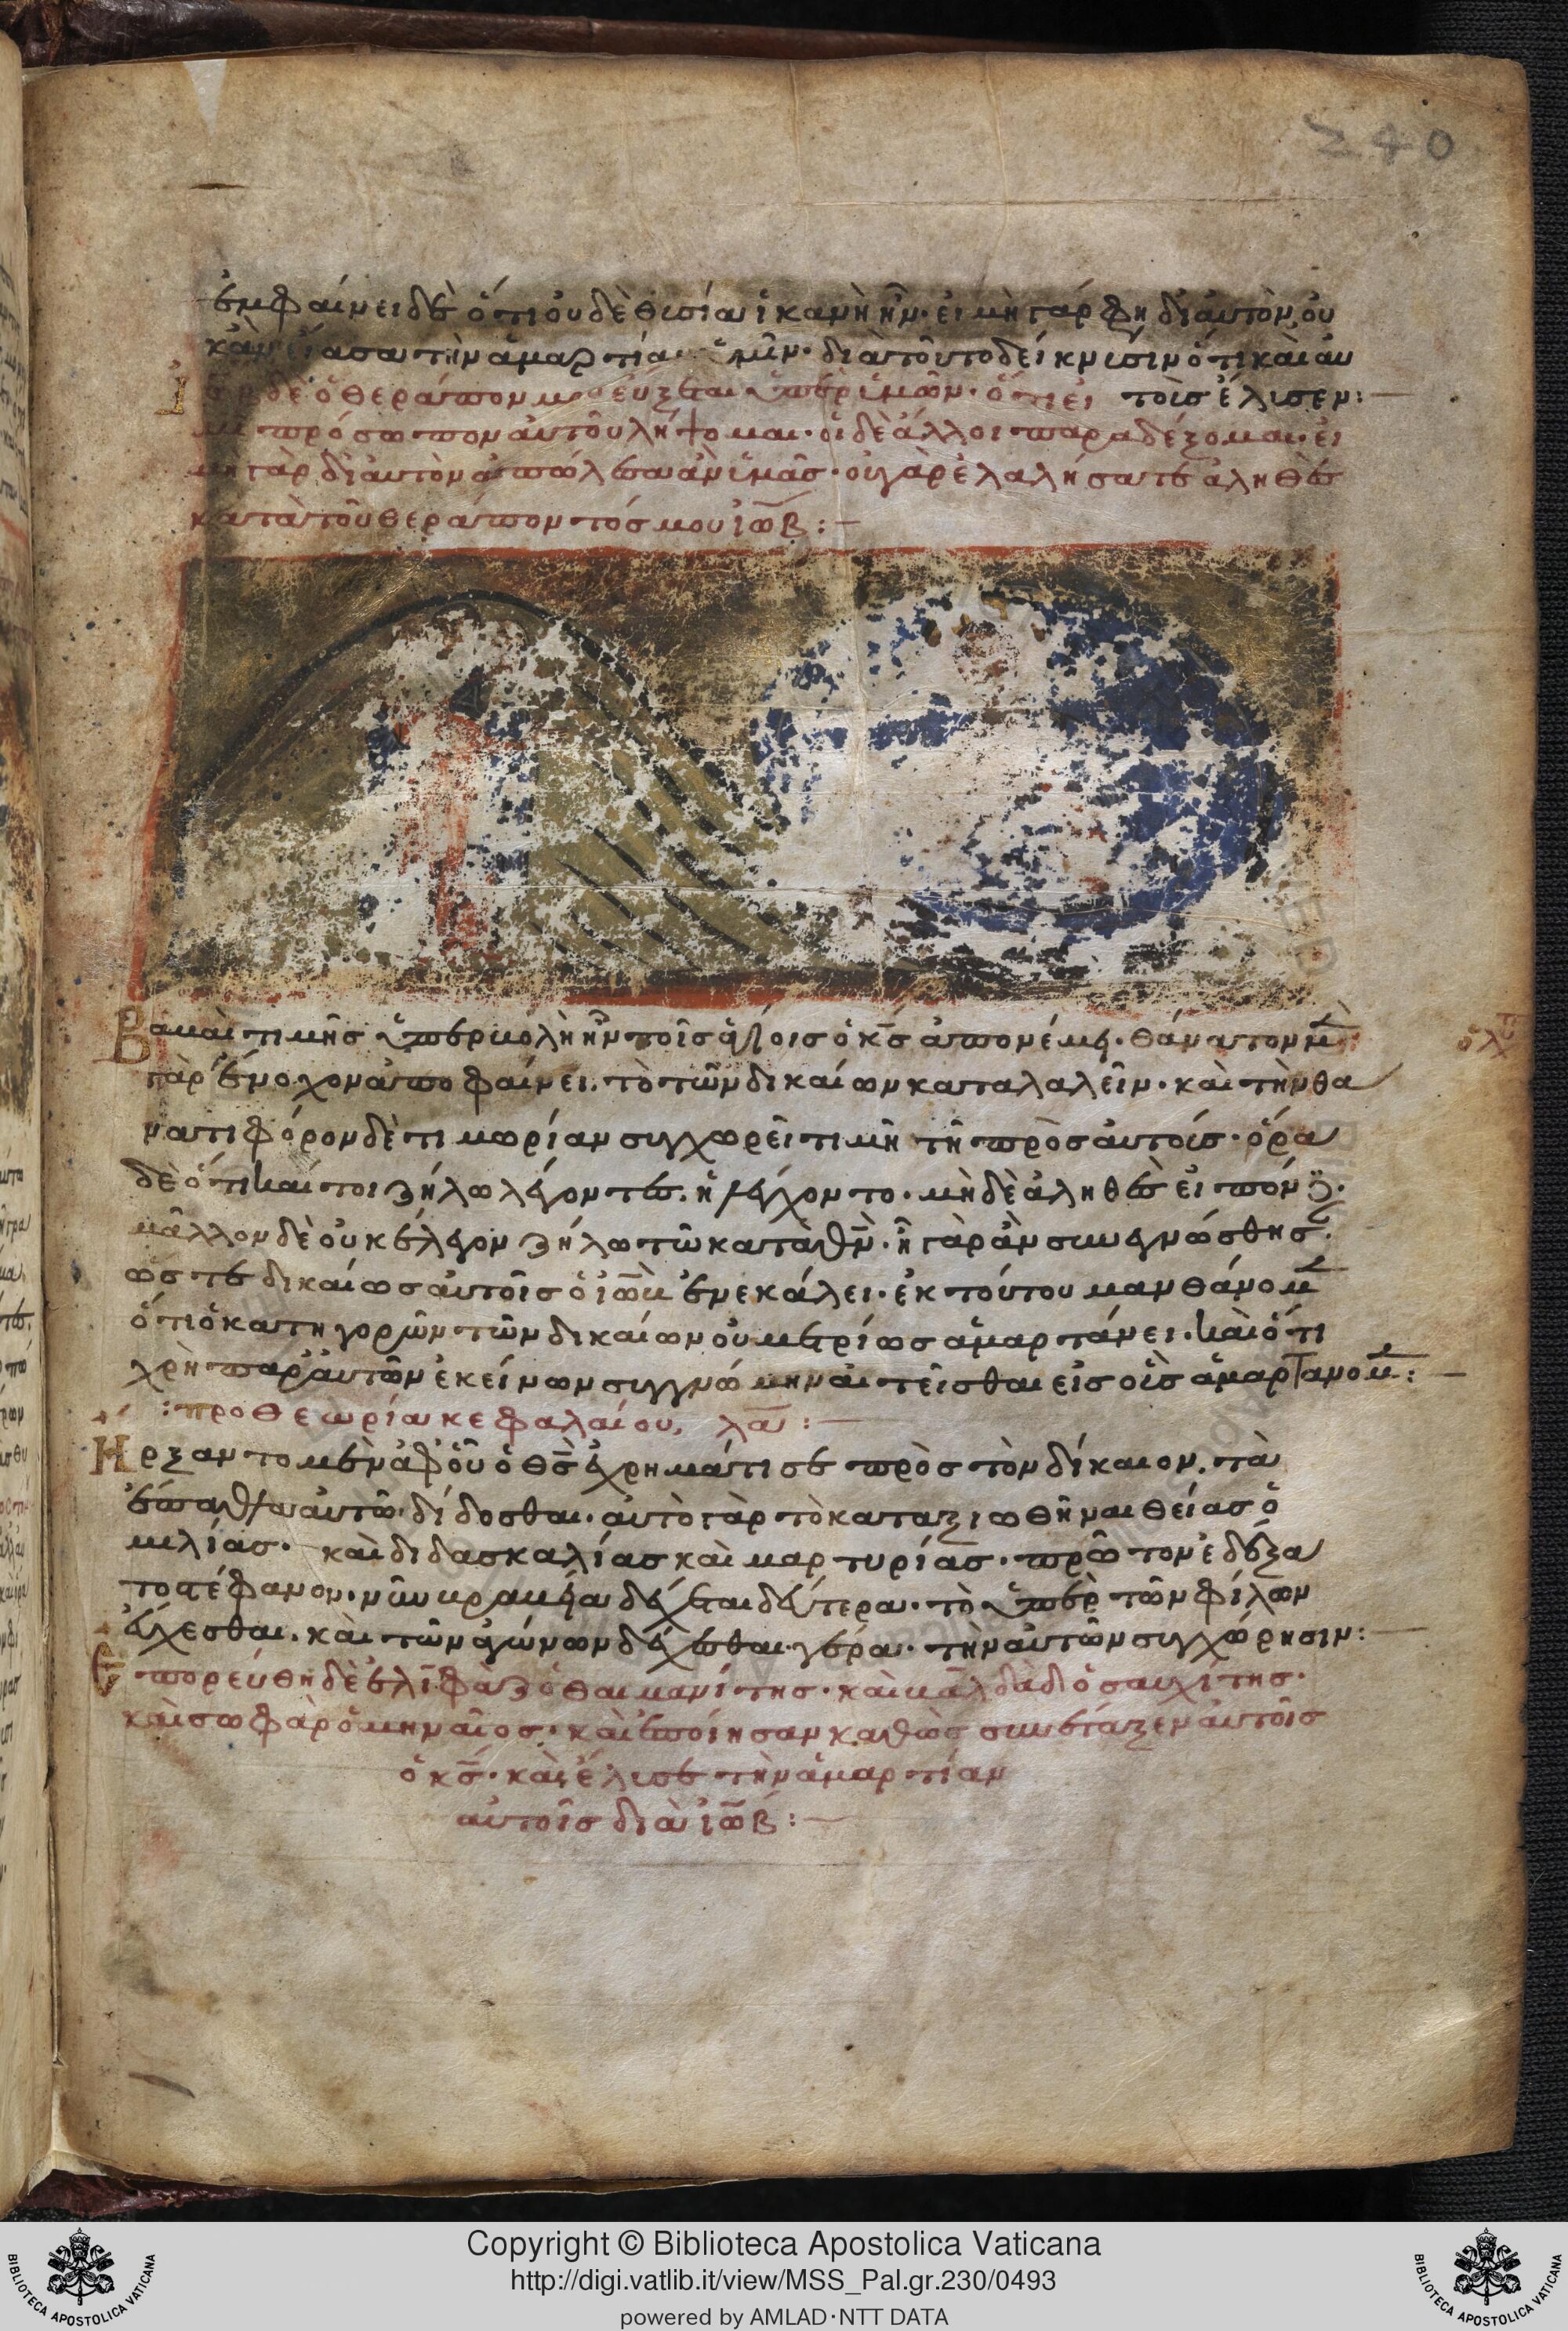 240
ἐμφαίνει δὲ ὅτι οὐδὲ θυσία ἱκανὴ ἦν· εἰ μὴ γάρ φη δι' αὐτὸν, οὐ
κἂν εἴασα τὴν ἁμαρτίαν ὑμῖν· διὰ τοῦτο δείκνυσιν ὅτι καὶ αὐ
τοῖς ἔλυσεν:
Ἰὼβ δὲ ὁ θεράπον μου εὔξεται ὑπὲρ ὑμῶν· ὅτι εἰ
μὴ πρόσωπον αὐτοῦ λήψομαι· οἱ δὲ ἄλλοι παραδέξομαι· εἰ
μὴ γὰρ δι' αὐτὸν ἀπώλεσα ἂν ὑμᾶς· οὐ γὰρ ἐλαλήσατε ἀληθὲς
κατὰ τοῦ θεράποντός μου ἰώβ:
Βαβαὶ τιμῆς ὑπερβολὴ ἣν τοῖς ἁγίοις ὁ κς ἀπονέμει· θάνατον μ
γὰρ ἔνοχον ἀποφαίνει, τὸ τῶν δικαίων καταλαλεῖν· καὶ τὴν θα
νατηφόρον δὲ τιμωρίαν συγχωρεῖ τιμῆ τῆ πρὸς αὐτούς· ὅρα
δὲ ὅτι καί τοι ζήλω λέγοντες, ἠλέγχοντο· μὴ δὲ ἀληθὲς εἰπόν
μᾶλλον δὲ οὐκ ἔλεγον ζήλω τῶ κατὰ θν· ἢ γὰρ ἂν συνεγνώσθησ
ὥστε δικαίως αὐτοῖς ὁ ἰὼβ ἐνεκάλει· ἐκ τούτου μανθάνομ
ὅτι ὁ κατηγορῶν τῶν δικαίων οὐ μετρίως ἁμαρτάνει· καὶ ὅτι
χρὴ παρ' αὐτῶν ἐκείνων συγγνώμην αἰτεῖσθαι εἰς οὓς ἁμαρτάνομ:
: προθεωρία κεφαλαίου, λα:
Ἤρξαντο μὲν ἀφ' οὗ ὁ θς ἐχρημάτισε πρὸς τὸν δίκαιον, τὰ
ἔπαθλα αὐτῶ δίδοσθαι· αὐτὸ γὰρ τὸ καταξιωθῆναι θείας ὁ
μιλίας· καὶ διδασκαλίας καὶ μαρτυρίας· πρῶτον ἐδέξα
το στέφανον· νῦν βραβεῖα δέχεται δεύτερα· τὸ ὑπὲρ τῶν φίλων
εὔχεσθαι· καὶ τῶν ἀγώνων δέχεσθαι γέρα· τὴν αὐτῶν συγχώρησιν:
Ἐπορεύθη δὲ ἐλιφὰζ ὁ θαιμανίτης· καὶ βαλδὰδ ὁ σαυχίτης·
καὶ σωφὰρ ὁ μηναῖος· καὶ ἐποίησαν καθὼς συνέταξεν αὐτοῖς
ὁ κς· καὶ ἔλυσε τὴν ἁμαρτίαν
αὐτοῖς διὰ ἰώβ:
Copyright © Biblioteca Apostolica Vaticana
http://digi.vatlib.it/view/MSS_Pal.gr.230/0493
powered by AMLAD·NTT DATA
BIBLIOTECA APOSTOLICA VATICANA
BIBLIOTECA APOSTOLICA VATICANA